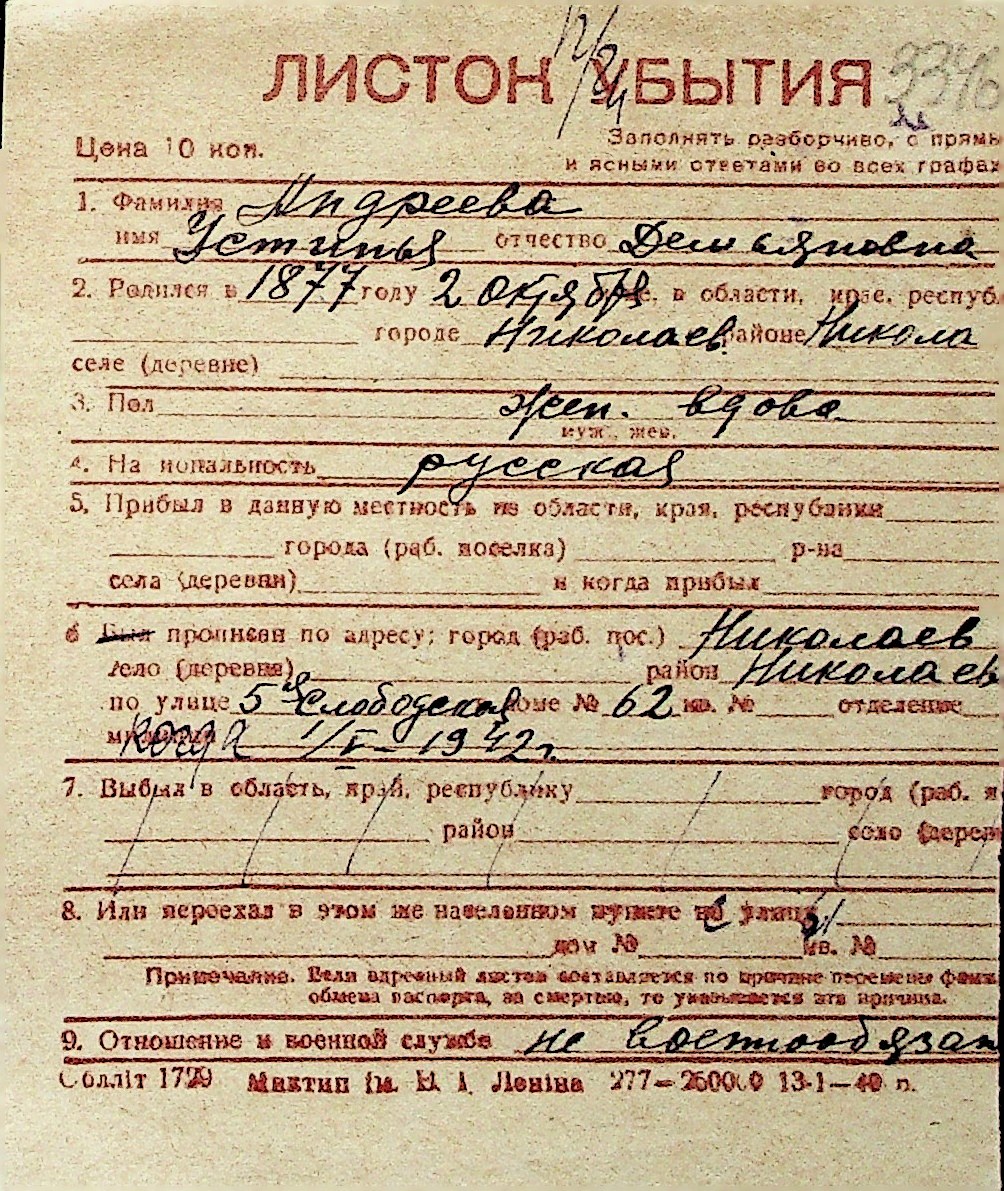 ЛИСТОК УБЫТИЯ 3346
Цена 10 коп.
Заполнять разборчиво, с прямы
и ясными ответами во всех графах
1. Фамилия Андреева
имя Устинья отчество Демьяновна
2. Родился в 1877 году 2 октября, в области, крае, республ.
городе Николаев районе Никола
селе (деревне)
3. Пол жен. вдова
муж., жен.
4. Национальность русская
5. Прибыл в данную местность из области, края, республики
города (раб. поселка) р-на
села (деревни) и когда прибыл
6 Был прописан по адресу: город (раб. пос.) Николаев
село (деревня) район Николаев
по улице 5я Слободская доме № 62 кв. № отделение
милиции когда 1/I-1942г.
7. Выбыл в область, край, республику город (раб. п
район село (дерев
8. Или переехал в этом же населенном пункте на улицу
дом № кв. №
Примечание. Если адресный листок составляется по причине перемены фами
обмена паспорта, за смертью, то указывается эта причина.
9. Отношение к военной службе не военнообязан
Облліт 1729 Миктип ім. В. І. Леніна 277—250000 13-1—40 р.